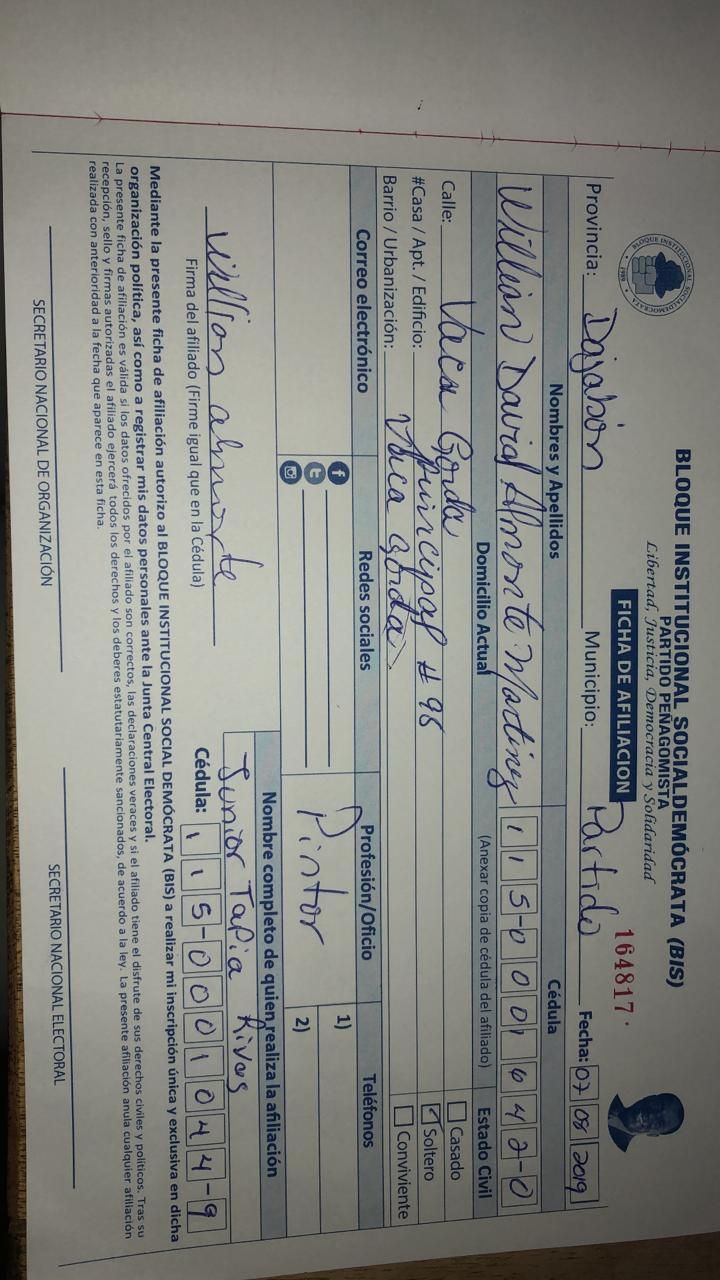 BLOQUE INSTITUCIONAL SOCIALDEMÓCRATA (BIS)
PARTIDO PEÑAGOMISTA
Libertad, Justicia, Democracia y Solidaridad
BLOQUE INSTITUCIONAL SOCIALDEMOCRATA
1989
FICHA DE AFILIACION
164817
Provincia: Dajabón Municipio: Partido Fecha: 07 08 2019
Nombres y Apellidos Cédula
Willian David Almonte Martinez 115-0001642-0
Domicilio Actual (Anexar copia de cédula del afiliado) Estado Civil
Calle: Vaca Gorda Casado
#Casa / Apt. / Edificio: principal #96 Soltero
Barrio / Urbanización: Vaca Gorda Conviviente
Correo electrónico Redes sociales Profesión/Oficio Teléfonos
Pintor 1)
2)
Nombre completo de quien realiza la afiliación
Junior Tapia Rivas
Willian almonte
Firma del afiliado (Firme igual que en la Cédula)
Cédula: 115-0001044-9
Mediante la presente ficha de afiliación autorizo al BLOQUE INSTITUCIONAL SOCIAL DEMÓCRATA (BIS) a realizar mi inscripción única y exclusiva en dicha
organización política, así como a registrar mis datos personales ante la Junta Central Electoral.
La presente ficha de afiliación es válida si los datos ofrecidos por el afiliado son correctos, las declaraciones veraces y si el afiliado tiene el disfrute de sus derechos civiles y políticos. Tras su
recepción, sello y firmas autorizadas el afiliado ejercerá todos los derechos y los deberes estatutariamente sancionados, de acuerdo a la ley. La presente afiliación anula cualquier afiliación
realizada con anterioridad a la fecha que aparece en esta ficha.
SECRETARIO NACIONAL DE ORGANIZACIÓN
SECRETARIO NACIONAL ELECTORAL